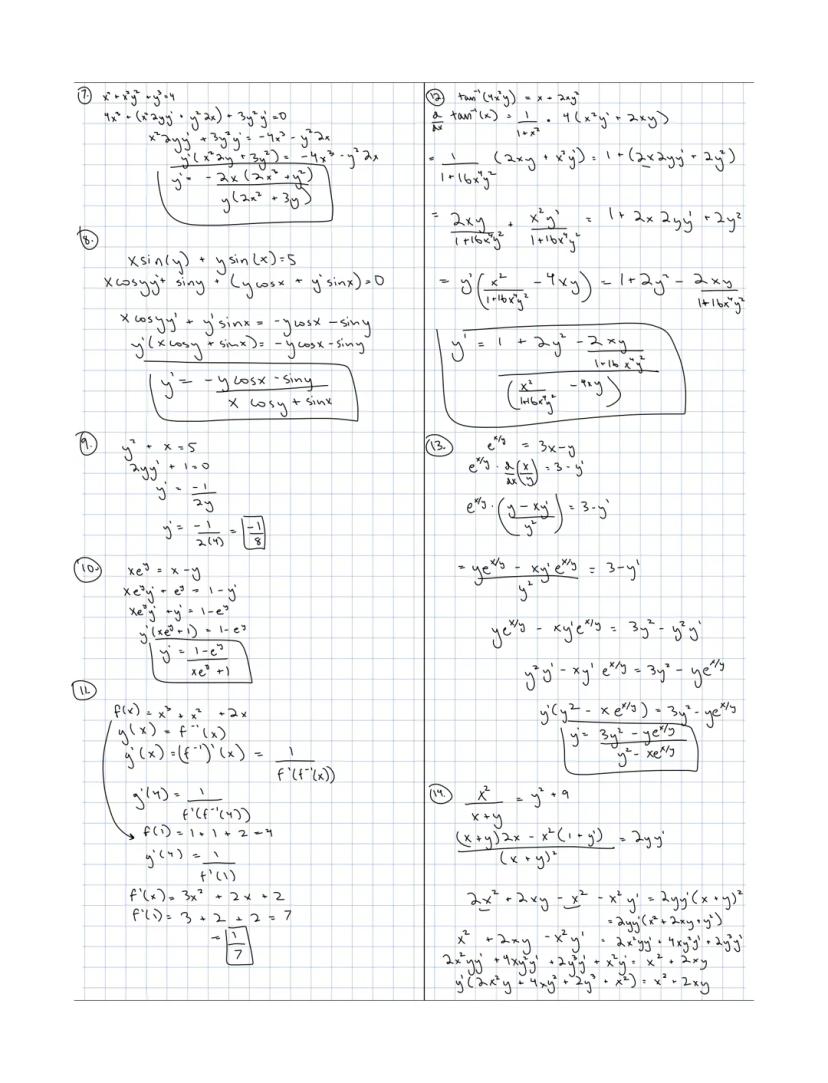 7. x⁴ + x²y² + y³ = 4
4x³ + (x²2yy' + y²2x) + 3y²y' = 0
x²2yy' + 3y²y' = -4x³ - y²2x
y'(x²2y + 3y²) = -4x³ - y²2x
y' = -2x(2x² + y²) / y(2x² + 3y)
8.
xsin(y) + ysin(x) = 5
xcosyy' + siny + (ycosx + y'sinx) = 0
xcosyy' + y'sinx = -ycosx - siny
y'(xcosy + sinx) = -ycosx - siny
y' = -ycosx - siny / x cosy + sinx
9.
y² + x = 5
2yy' + 1 = 0
y' = -1/2y
y' = -1/2(4) = -1/8
10. xeʸ = x - y
xeʸy' + eʸ = 1 - y'
xeʸy' + y' = 1 - eʸ
y'(xeʸ + 1) = 1 - eʸ
y' = 1 - eʸ / xeʸ + 1
11.
f(x) = x³ + x² + 2x
g(x) = f⁻¹(x)
g'(x) = (f⁻¹)'(x) = 1 / f'(f⁻¹(x))
g'(4) = 1 / f'(f⁻¹(4))
f(1) = 1 + 1 + 2 = 4
g'(4) = 1 / f'(1)
f'(x) = 3x² + 2x + 2
f'(1) = 3 + 2 + 2 = 7
= 1/7
12 tan⁻¹(4x²y) = x + 2xy²
d/dx tan⁻¹(x) = 1/1+x² · 4(x²y' + 2xy)
= 1/1+16x⁴y² (2xy + x²y') = 1 + (2x2yy' + 2y²)
= 2xy/1+16x⁴y² + x²y'/1+16x⁴y² = 1 + 2x2yy' + 2y²
= y'(x²/1+16x⁴y² - 4xy) = 1 + 2y² - 2xy/1+16x⁴y²
y' = 1 + 2y² - 2xy/1+16x⁴y² / (x²/1+16x⁴y² - 4xy)
13. e^x/y = 3x - y
e^x/y · d/dx(x/y) = 3 - y'
e^x/y · (y - xy'/y²) = 3 - y'
= ye^x/y - xy'e^x/y / y² = 3 - y'
ye^x/y - xy'e^x/y = 3y² - y²y'
y²y' - xy'e^x/y = 3y² - ye^x/y
y'(y² - xe^x/y) = 3y² - ye^x/y
y' = 3y² - ye^x/y / y² - xe^x/y
14. x²/x+y = y² + 9
(x+y)2x - x²(1+y') / (x+y)² = 2yy'
2x² + 2xy - x² - x²y' = 2yy'(x+y)²
= 2yy'(x² + 2xy + y²)
x² + 2xy - x²y' = 2x²yy' + 4xy²y' + 2y³y'
2x²yy' + 4xy²y' + 2y³y' + x²y' = x² + 2xy
y'(2x²y + 4xy² + 2y³ + x²) = x² + 2xy